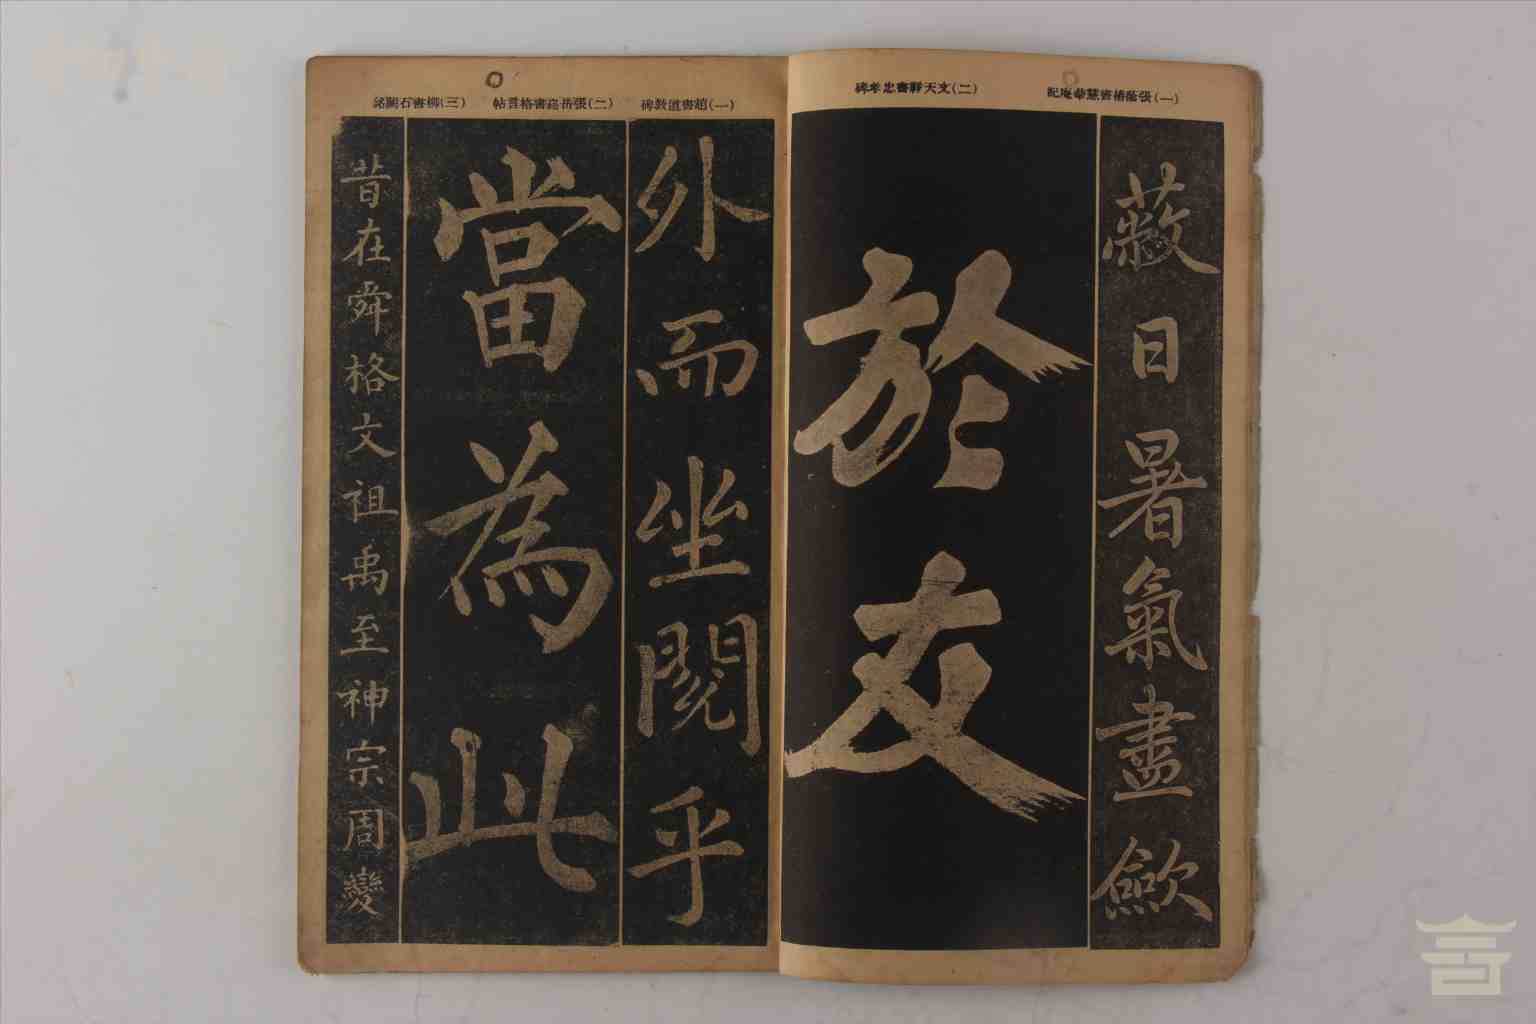 (一)張蔭椿書慧華庵記
(二)文天祥書忠孝碑
蔽日暑氣盡歛
於友
(一)趙書道敎碑
(二)張岳崧書格言帖
(三)柳書石闕銘
外而坐閱乎
當為此
昔在舜格文祖禹至神宗周變